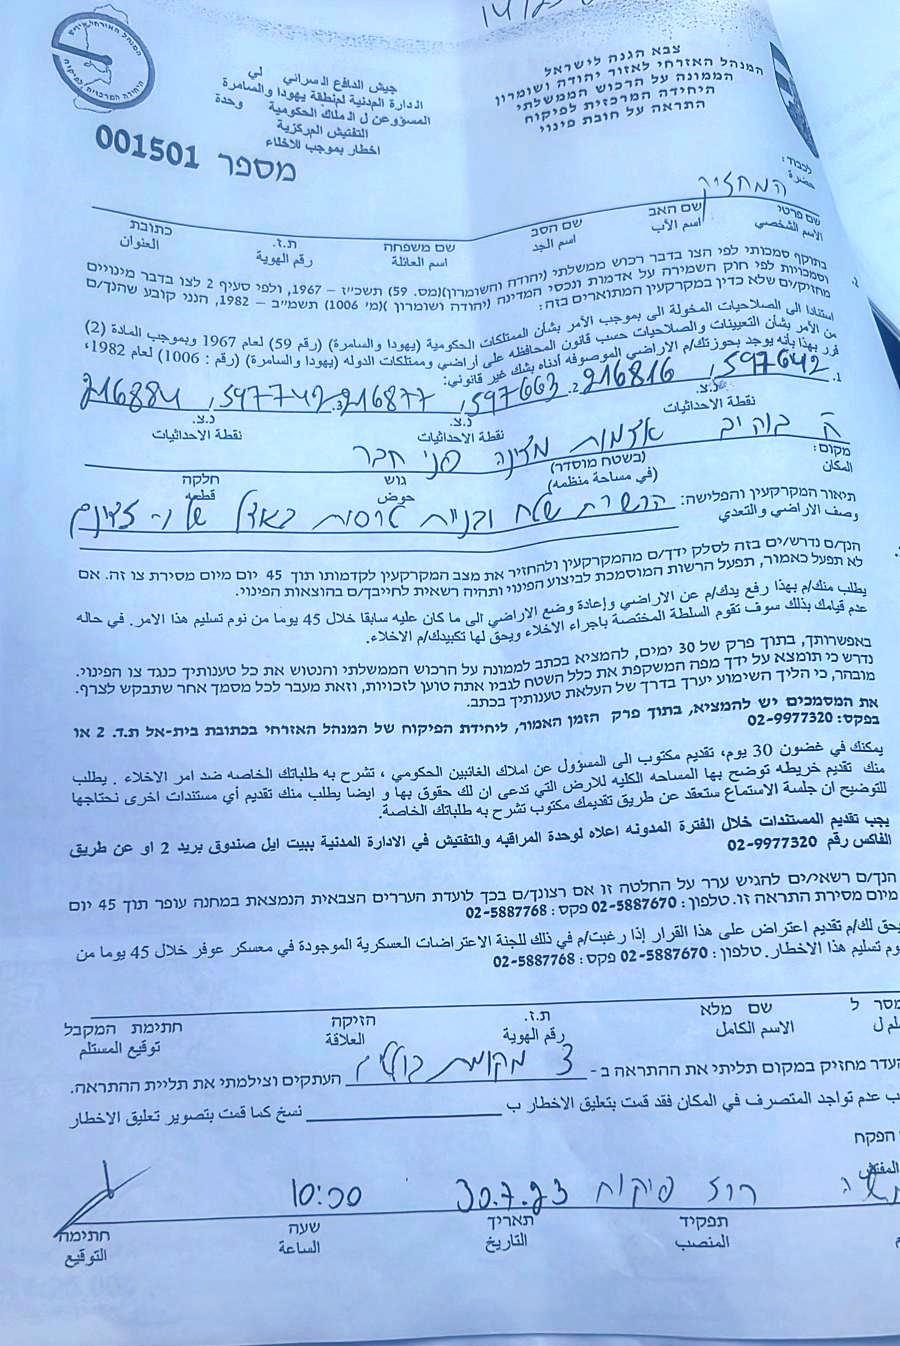 14/23
צבא הגנה לישראל
המנהל האזרחי לאזור יהודה ושומרון
הממונה על הרכוש הממשלתי
היחידה המרכזית לפיקוח
התראה על חובת פינוי
جيش الدافع السرائي لي
الدارة المدنية لمنطقة يهودا والسامرة
المسؤوعن ل الملاك الحكومية وحدة
التفتيش المركزية
اخطار بموجب للاخلاء
מספר 001501
לכבוד:
حضرة
המחזיק
שם פרטי שם האב שם הסב שם משפחה ת.ז. כתובת
الاسم الشخصي اسم الأب اسم الجد اسم العائلة رقم الهوية العنوان
בתוקף סמכותי לפי הצו בדבר רכוש ממשלתי (יהודה והשומרון)(מס. 59) תשכ״ז – 1967, ולפי סעיף 2 לצו בדבר מינויים
וסמכויות לפי חוק השמירה על אדמות ונכסי המדינה (יהודה ושומרון )(מ׳ 1006) תשמ״ב – 1982, הנני קובע שהנך/ם
מחזיק/ים שלא כדין במקרקעין המתוארים בזה:
استنادا الى الصلاحيات المخولة الى بموجب الأمر بشأن الممتلكات الحكومية (يهودا والسامرة) (رقم 59) لعام 1967 وبموجب المادة (2)
من الأمر بشأن التعيينات والصلاحيات حسب قانون المحافظه على اراضي وممتلكات الدوله (يهودا والسامرة) (رقم : 1006) لعام 1982،
قرر بهذا بأنه يوجد بحوزتك/م الاراضي الموصوفه أدناه بشك غير قانوني:
1. 216816 , 597642 2. 216877 , 597663 3. 216884 , 597742
נ.צ. נ.צ. נ.צ.
نقطة الاحداثيات نقطة الاحداثيات نقطة الاحداثيات
אדמות מדינה פני חבר
מקום: (בשטח מוסדר) גוש חלקה
المكان (في مساحة منظمه) حوض قطعه
תיאור המקרקעין והפלישה: הכשרת שטח ובניית טרסות
وصف الاراضي والتعدي
הנך/ם נדרש/ים בזה לסלק ידך/ם מהמקרקעין ולהחזיר את מצב המקרקעין לקדמותו תוך 45 יום מיום מסירת צו זה. אם
לא תפעל כאמור, תפעל הרשות המוסמכת לביצוע הפינוי ותהיה רשאית לחייבך/ם בהוצאות הפינוי.
يطلب منك/م بهذا رفع يدك/م عن الاراضي وإعادة وضع الاراضي الى ما كان عليه سابقا خلال 45 يوما من نوم تسليم هذا الامر. في حاله
عدم قيامك بذلك سوف تقوم السلطة المختصة باجراء الاخلاء ويحق لها تكبيدك/م الاخلاء.
באפשרותך, בתוך פרק של 30 ימים, להמציא בכתב לממונה על הרכוש הממשלתי והנטוש את כל טענותיך כנגד צו הפינוי.
נדרש כי תומצא על ידך מפה המשקפת את כלל השטח לגביו אתה טוען לזכויות, וזאת מעבר לכל מסמך אחר שתבקש לצרף.
מובהר, כי הליך השימוע יערך בדרך של העלאת טענותיך בכתב.
את המסמכים יש להמציא, בתוך פרק הזמן האמור, ליחידת הפיקוח של המנהל האזרחי בכתובת בית-אל ת.ד. 2 או
בפקס: 02-9977320
يمكنك في غضون 30 يوم، تقديم مكتوب الى المسؤول عن املاك الغائبين الحكومي ، تشرح به طلباتك الخاصه ضد امر الاخلاء . يطلب
منك تقديم خريطه توضح بها المساحه الكليه للارض التي تدعى ان لك حقوق بها و ايضا يطلب منك تقديم أي مستندات اخرى نحتاجها
للتوضيح ان جلسة الاستماع ستعقد عن طريق تقديمك مكتوب تشرح به طلباتك الخاصة.
يجب تقديم المستندات خلال الفترة المدونه اعلاه لوحدة المراقبه والتفتيش في الادارة المدنية ببيت ايل صندوق بريد 2 او عن طريق
الفاكس رقم 02-9977320
הנך/ם רשאי/ים להגיש ערר על החלטה זו אם רצונך/ם בכך לועדת העררים הצבאית הנמצאת במחנה עופר תוך 45 יום
מיום מסירת התראה זו. טלפון: 02-5887670 פקס: 02-5887768
يحق لك/م تقديم اعتراض على هذا القرار إذا رغبت/م في ذلك للجنة الاعتراضات العسكرية الموجودة في معسكر عوفر خلال 45 يوما من
وم تسليم هذا الاخطار. טלפון: 02-5887670 פקס: 02-5887768
מסר ל שם מלא ת.ז. הזיקה חתימת המקבל
الاسم الكامل رقم الهوية العلاقة توقيع المستلم
העדר מחזיק במקום תליתי את ההתראה ב- העתקים וצילמתי את תליית ההתראה.
ب عدم تواجد المتصرف في المكان فقد قمت بتعليق الاخطار ب نسخ كما قمت بتصوير تعليق الاخطار
הפקח
المفتش
רוז פיקוח 30.7.23 10:30
תפקיד תאריך שעה חתימה
المنصب التاريخ الساعة التوقيع